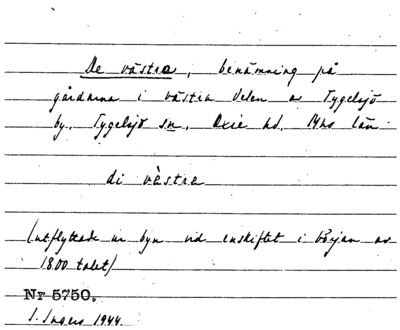 De västra, benämning på
gårdarna i västra delen av Tygelsjö
by. Tygelsjö sn, Oxie hd. Mhs län.
di vèstra
(utflyttade ur byn vid enskiftet i början av
1800 talet)
Nr 5750.
I. Ingers 1944.